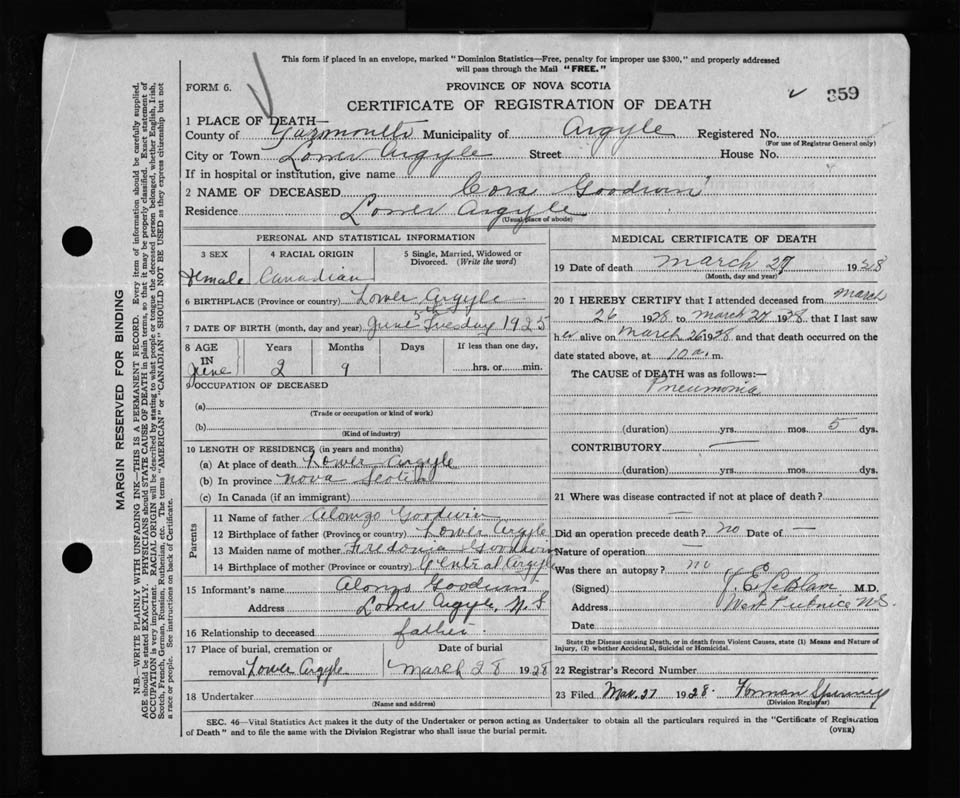 This form if placed in an envelope, marked "Dominion Statistics—Free, penalty for improper use $300," and properly addressed
will pass through the Mail "FREE."
FORM 6.
PROVINCE OF NOVA SCOTIA
359
CERTIFICATE OF REGISTRATION OF DEATH
1 PLACE OF DEATH—
County of Yarmouth Municipality of Argyle Registered No.
(For use of Registrar General only)
City or Town Lower Argyle Street House No.
If in hospital or institution, give name
2 NAME OF DECEASED Cora Goodwin
Residence Lower Argyle
(Usual place of abode)
PERSONAL AND STATISTICAL INFORMATION
3 SEX 4 RACIAL ORIGIN 5 Single, Married, Widowed or
Divorced. (Write the word)
Female Canadian
6 BIRTHPLACE (Province or country) Lower Argyle
5th
7 DATE OF BIRTH (month, day and year) June Tuesday 1925
8 AGE Years Months Days If less than one day,
IN
June 2 9 hrs. or min.
9 OCCUPATION OF DECEASED
(a)
(Trade or occupation or kind of work)
(b)
(Kind of industry)
10 LENGTH OF RESIDENCE (in years and months)
(a) At place of death Lower Argyle
(b) In province Nova Scotia
(c) In Canada (if an immigrant)
Parents
11 Name of father Alonzo Goodwin
12 Birthplace of father (Province or country) Lower Argyle
13 Maiden name of mother Fredonia Goodwin
14 Birthplace of mother (Province or country) Central Argyle
15 Informant's name Alonzo Goodwin
Address Lower Argyle, N.S
16 Relationship to deceased father.
17 Place of burial, cremation or Date of burial
removal Lower Argyle March 28 1928
18 Undertaker
(Name and address)
MEDICAL CERTIFICATE OF DEATH
19 Date of death March 27 1928
(Month, day and year)
20 I HEREBY CERTIFY that I attended deceased from March
26 1928 to March 27 1928 that I last saw
her alive on March 26 1928 and that death occurred on the
date stated above, at 10 a. m.
The CAUSE of DEATH was as follows:—
Pneumonia
(duration) yrs. mos. 5 dys.
CONTRIBUTORY —
(duration) yrs. mos. dys.
21 Where was disease contracted if not at place of death?
—
Did an operation precede death? no Date of —
Nature of operation —
Was there an autopsy? no
(Signed) J. E. LeBlanc M.D.
Address West Pubnico N.S.
Date
State the Disease causing Death, or in death from Violent Causes, state (1) Means and Nature of
Injury, (2) whether Accidental, Suicidal or Homicidal.
22 Registrar's Record Number
23 Filed Mar. 27 1928. Forman Spinney
(Division Registrar)
SEC. 46—Vital Statistics Act makes it the duty of the Undertaker or person acting as Undertaker to obtain all the particulars required in the "Certificate of Registration
of Death" and to file the same with the Division Registrar who shall issue the burial permit.
(OVER)
MARGIN RESERVED FOR BINDING
N.B.—WRITE PLAINLY WITH UNFADING INK—THIS IS A PERMANENT RECORD. Every item of information should be carefully supplied.
AGE should be stated EXACTLY. PHYSICIANS should STATE CAUSE OF DEATH in plain terms, so that it may be properly classified. Exact statement of
OCCUPATION is very important. RACIAL ORIGIN will be described by stating to what people or tongue the deceased person belonged, whether English, Irish,
Scotch, French, German, Russian, Ruthenian, etc. The terms "AMERICAN" or "CANADIAN" SHOULD NOT BE USED as they express citizenship but not
a race or people. See instructions on back of Certificate.